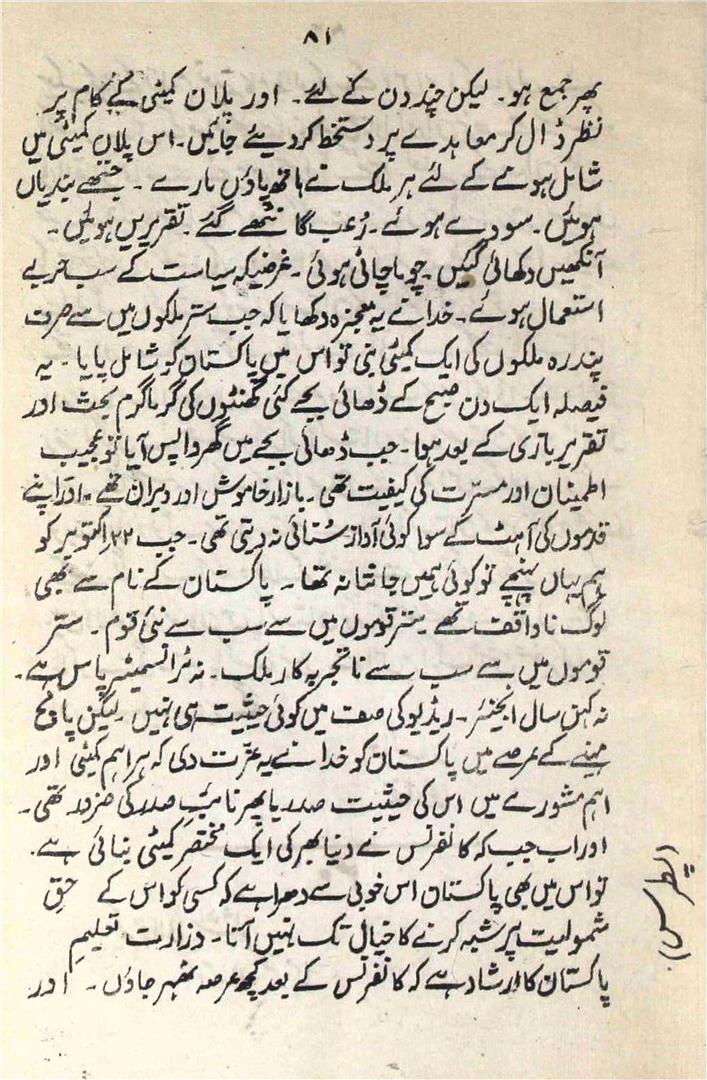 ۸۱
پھر جمع ہو۔ لیکن چند دن کے لئے۔ اور پلان کمیٹی کے کام پر
نظر ڈال کر معاہدے پر دستخط کر دیئے جائیں۔ اس پلان کمیٹی میں
شامل ہونے کے لئے ہر ملک نے ہاتھ پاؤں مارے۔ جتھے بندیاں
ہوئیں۔ سودے ہوئے۔ رُعب گانٹھے گئے۔ تقریریں ہوئیں۔
آنکھیں دکھائی گئیں۔ چوما چاٹی ہوئی۔ غرضیکہ سیاست کے سب حربے
استعمال ہوئے۔ خدا نے یہ معجزہ دکھایا کہ جب ستر ملکوں میں سے صرف
پندرہ ملکوں کی ایک کمیٹی بنی تو اس میں پاکستان کو شامل پایا۔ یہ
فیصلہ ایک دن صبح کے ڈھائی بجے کئی گھنٹوں کی گرماگرم بحث اور
تقریر بازی کے بعد ہوا۔ جب ڈھائی بجے میں گھر واپس آیا تو عجیب
اطمینان اور مسرّت کی کیفیت تھی۔ بازار خاموش اور ویران تھے۔ اور اپنے
قدموں کی آہٹ کے سوا کوئی آواز سُنائی نہ دیتی تھی۔ جب ۲۲ اکتوبر کو
ہم یہاں پہنچے تو کوئی ہمیں جانتا نہ تھا۔ پاکستان کے نام سے بھی
لوگ ناواقف تھے۔ ستر قوموں میں سے سب سے نئی قوم۔ ستر
قوموں میں سے سب سے ناتجربہ کار ملک۔ نہ ٹرانسمیٹر پاس ہے۔
نہ کہن سال انجنیئر۔ ریڈیو کی صف میں کوئی حیثیت ہی نہیں۔ لیکن پانچ
مہینے کے عرصے میں پاکستان کو خدا نے یہ عزّت دی کہ ہر اہم کمیٹی اور
اہم مشورے میں اس کی حیثیت صدر یا پھر نائبِ صدر کی ضرور تھی۔
اور اب جب کہ کانفرنس نے دنیا بھر کی ایک مختصر کمیٹی بنائی ہے۔
تو اس میں بھی پاکستان اس خوبی سے دھرا ہے کہ کسی کو اس کے حق
شمولیت پر شبہ کرنے کا خیال تک نہیں آتا۔ وزارت تعلیمِ
پاکستان کا ارشاد ہے کہ کانفرنس کے بعد کچھ عرصہ ٹھہر جاؤں۔ اور
(پطرس)